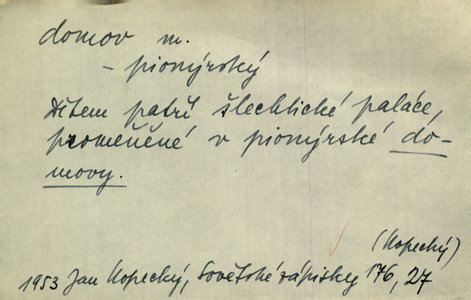 domov m.
– pionýrský
Dětem patří šlechtické paláce,
proměněné v pionýrské do-
movy.
(Kopecký)
1953 Jan Kopecký, Sovětské zápisky 176, 27